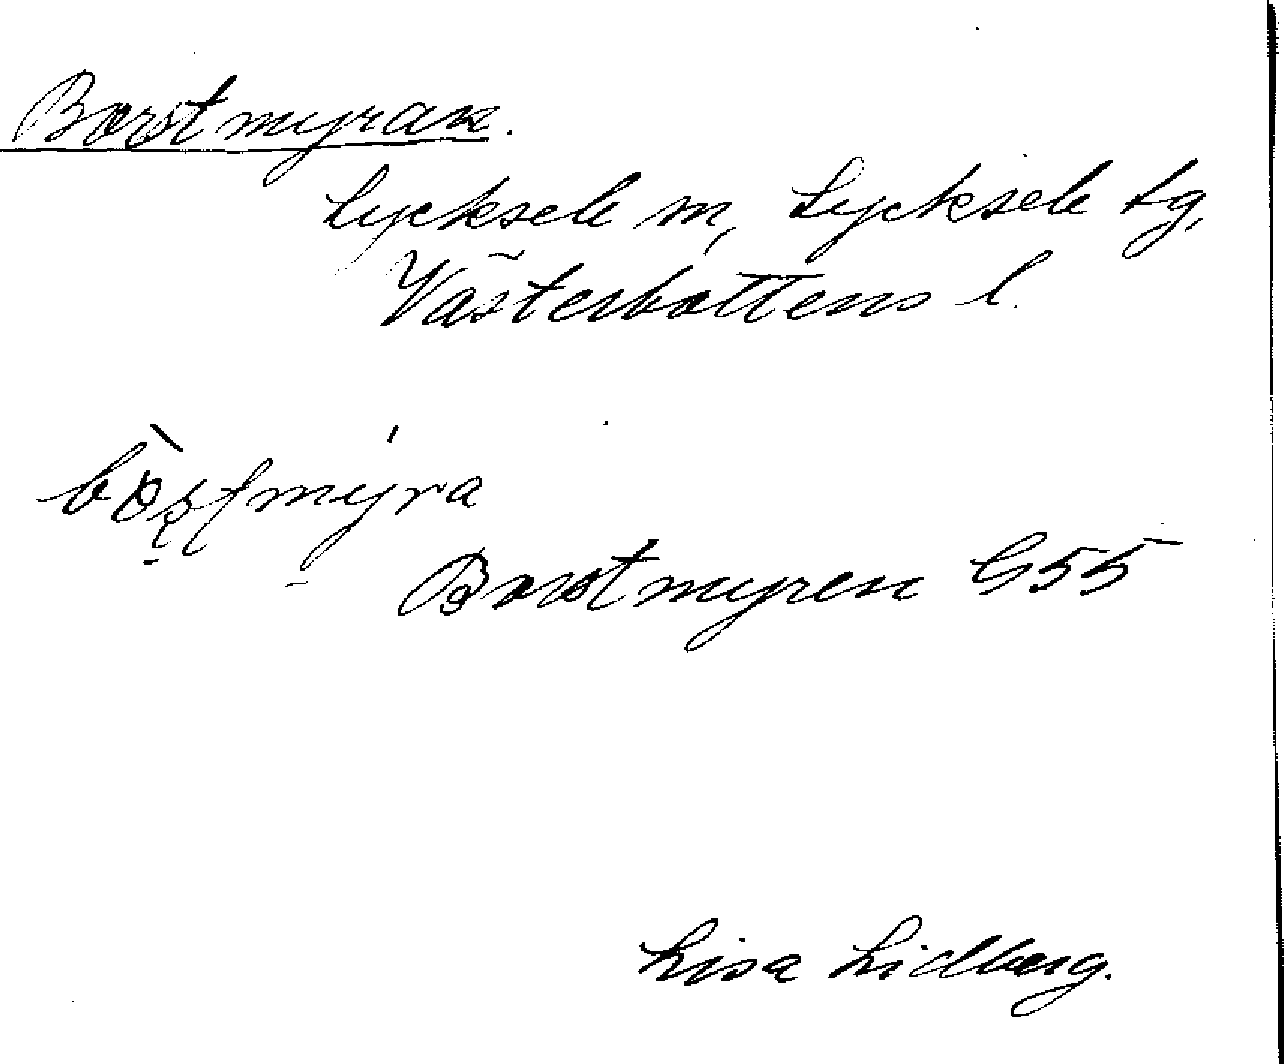 Borstmyran.
Lycksele m, Lycksele tg,
Västerbottens l.
Borstmyren G55
Lisa Lidberg.